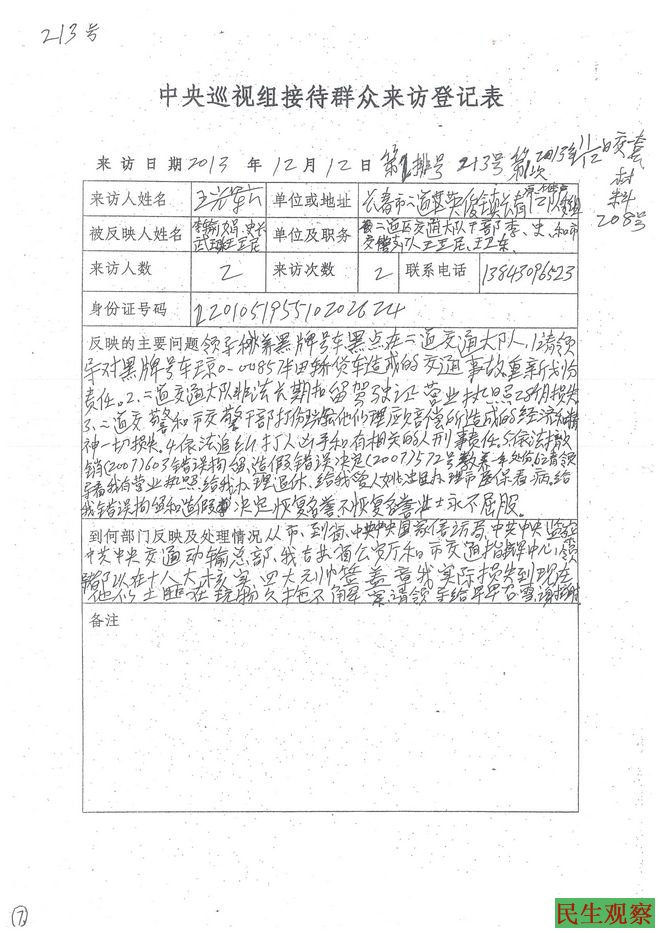 213号
中央巡视组接待群众来访登记表
来访日期2013年12月12日 排号213号
2013年11/12日交套
材
料
208号
来访人姓名 单位或地址 长春市二道区英俊镇长青
被反映人姓名 单位及职务 二道区交通大队干部李、史、和市
来访人数 2 来访次数 2 联系电话 13843096523
身份证号码 220105195510202624
反映的主要问题 领导 黑牌号车黑点在二道交通大队,1请领
导对黑牌号车琼0-0085 货车造成的交通事故重新划分
责任。2、二道交通大队非法长期扣留驾驶证营业执照28月损失
3、二道交警和市交警干部打伤 他们理应赔偿所造成的经济和精
神一切损失。4依法追纠打人凶手和有相关的人刑事责任。5依法撤
销(2007)603错误拘留、造假错误决定(2007)572号教养一年处份6请领
导看我有营业热照、给我办理退休、给我 办理市医保看病、给
我错误拘留和造假 决定恢复名誉不恢复名誉 士永不屈服。
到何部门反映及处理情况 从市、到省、中央 国家信访局、中共中央监察
中共中央交通动输总部、我吉林省公安厅和市交通指辉中心、领
都以在十八大核实 四大元帅签盖章我实际损失到现在
他以 在 拖不解案请领导给早早
备注
7
民生观察